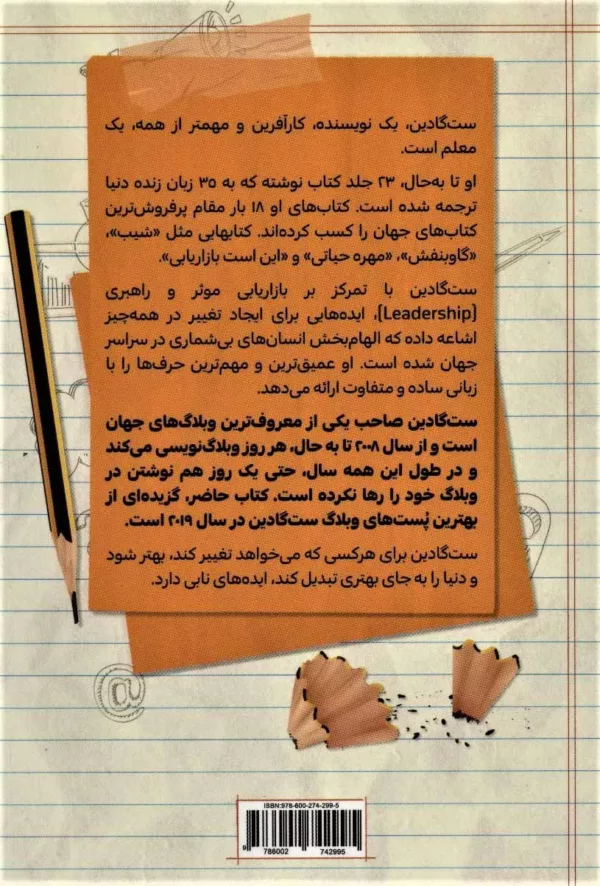 ست‌گادین، یک نویسنده، کارآفرین و مهمتر از همه، یک
معلم است.
او تا به‌حال، ۲۳ جلد کتاب نوشته که به ۳۵ زبان زنده دنیا
ترجمه شده است. کتاب‌های او ۱۸ بار مقام پرفروش‌ترین
کتاب‌های جهان را کسب کرده‌اند. کتابهایی مثل «شیب»،
«گاوبنفش»، «مهره حیاتی» و «این است بازاریابی».
ست‌گادین با تمرکز بر بازاریابی موثر و راهبری
[Leadership]، ایده‌هایی برای ایجاد تغییر در همه‌چیز
اشاعه داده که الهام‌بخش انسان‌های بی‌شماری در سراسر
جهان شده است. او عمیق‌ترین و مهم‌ترین حرف‌ها را با
زبانی ساده و متفاوت ارائه می‌دهد.
ست‌گادین صاحب یکی از معروف‌ترین وبلاگ‌های جهان
است و از سال ۲۰۰۸ تا به حال، هر روز وبلاگ‌نویسی می‌کند
و در طول این همه سال، حتی یک روز هم نوشتن در
وبلاگ خود را رها نکرده است. کتاب حاضر، گزیده‌ای از
بهترین پُست‌های وبلاگ ست‌گادین در سال ۲۰۱۹ است.
ست‌گادین برای هرکسی که می‌خواهد تغییر کند، بهتر شود
و دنیا را به جای بهتری تبدیل کند، ایده‌های نابی دارد.
@
ISBN:978-600-274-299-5
9 786002 742995